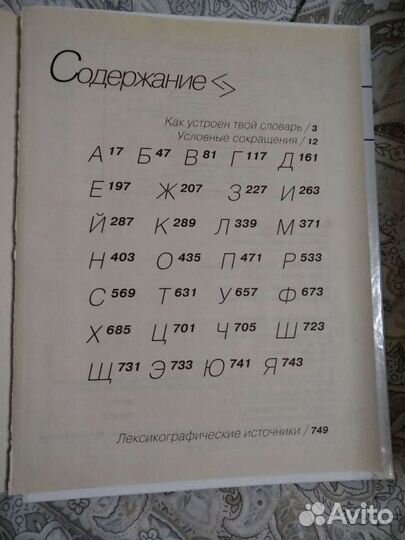 Содержание
Как устроен твой словарь / 3
Условные сокращения / 12
А 17 Б 47 В 81 Г 117 Д 161
Е 197 Ж 207 З 227 И 263
Й 287 К 289 Л 339 М 371
Н 403 О 435 П 471 Р 533
С 569 Т 631 У 657 Ф 673
Х 685 Ц 701 Ч 705 Ш 723
Щ 731 Э 733 Ю 741 Я 743
Лексикографические источники / 749
Avito